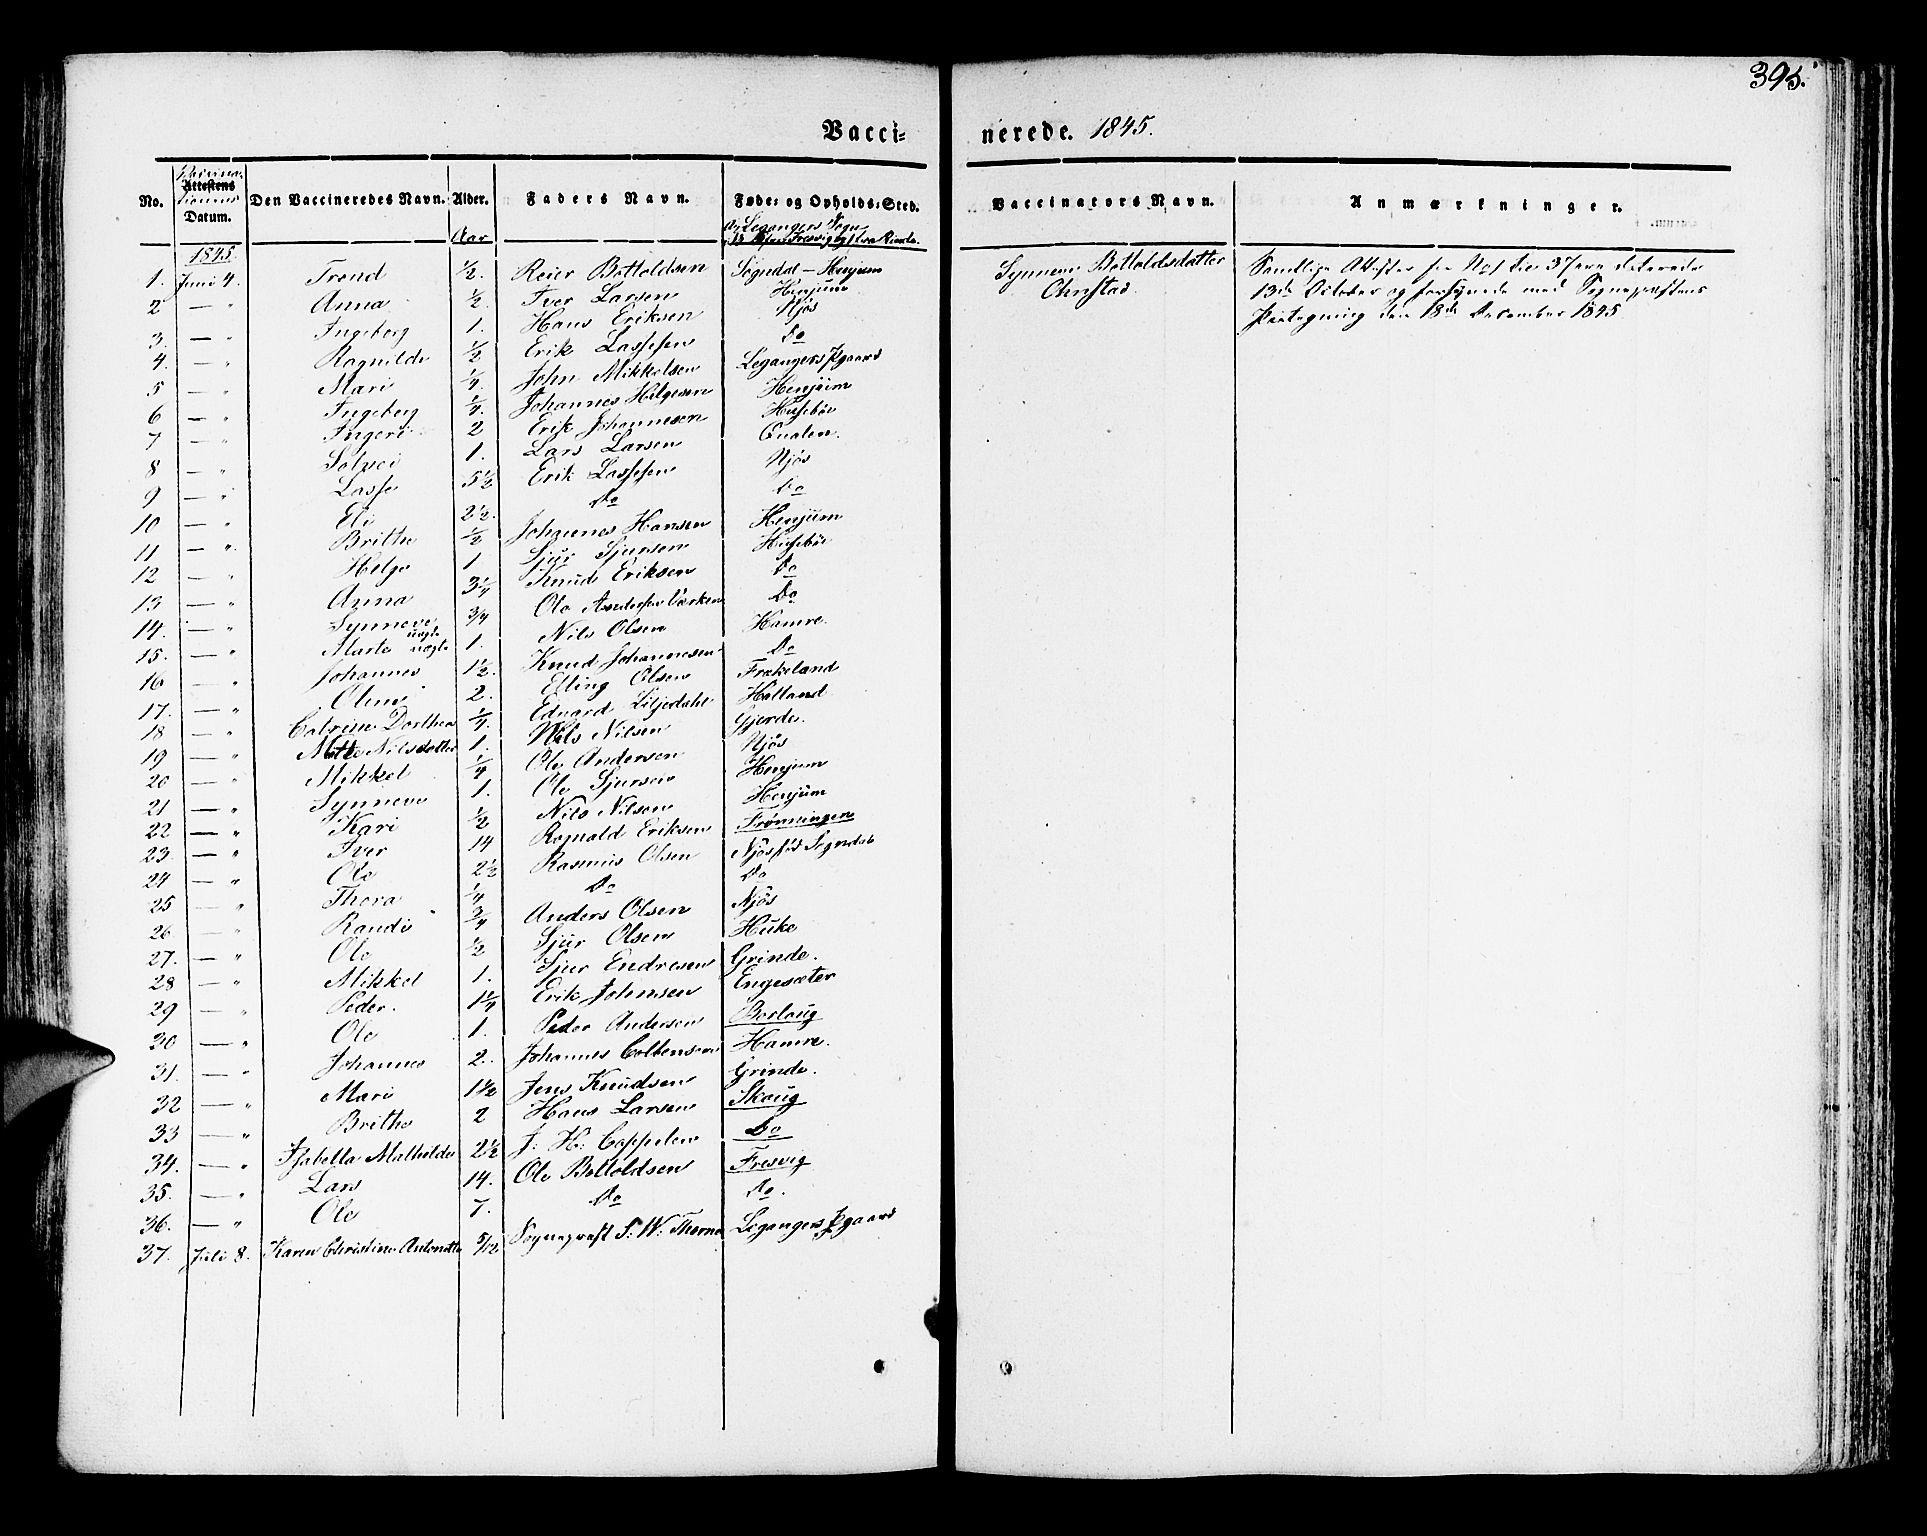 395.
Vacci- nerede. 1845.
No. Attestens Datum. Den Vaccineredes Navn. Alder. Faders Navn. Føde- og Opholds-Sted. Vaccinators Navn. Anmærkninger.
Aar Legangers Sogn
1845.
1. Juni 4. Trond ½. Reier Bottoldsen Sogndal — Henjum Synneve Bottoldsdatter Samtlige Attester fra No 1 til 37 ere daterede
2 — " Anna ½. Iver Larsen Henjum Ohnstad. 13de October og forsynede med Sognepræstens
3. — " Ingeborg 1. Hans Eriksen Njøs Paategning den 18de December 1845
4. — " Ragnilde ½ Erik Lassesen Do
5 — " Mari ¼. John Mikkelsen Legangers Pgaard
6 — " Ingeborg ¼. Johannes Helgesen Henjum
7 — " Ingeri 2 Erik Johannesen Husebøe
8 — " Solvei 1. Lars Larsen Qualen.
9 — " Lasse 5½ Erik Lassesen Njøs
10 — " Eli 2½. Do Do
11 — " Brithe ½ Johannes Hansen Henjum
12 — " Helge 1 Sjur Sjursen Husebøe
13 — " Anna 3¼ Knud Eriksen Do
14. — " Synneve 3/4 Ole Andersen Do
15. — " Marte uægte 1. Nils Olsen Hamre.
16 — " Johannes 1½. Knud Johannesen Do
17. — " Oline 2. Elling Olsen Frakeland
18 — " Catrine Dorthea ¼. Eduard Liljedahl Halland
19 — " Mette Nilsdatter 1. Nils Nilsen Gjerde.
20 — " Mikkel ¼ Ole Andersen Njøs
21 — " Synneve 1. Ole Sjursen Henjum
22 — " Kari ½ Nils Nilsen Henjum
23. — " Iver 14 Rognald Eriksen Frønningen
24 — " Ole 2½ Rasmus Olsen Njøs fød Sogndal
25 — " Thora ¼ Do Do
26 — " Randi 3/4 Anders Olsen Njøs
27. — " Ole ½ Sjur Olsen Huke
28 — " Mikkel 1. Sjur Endresen Grinde.
29 — " Peder. 1¼ Erik Johnsen Engesæter
30 — " Ole 1. Peder Andersen Borlaug
31. — " Johannes 2. Johannes Colbensen Hamre.
32 — " Mari 1½ Jens Knudsen Grinde.
33 — " Brithe 2 Hans Larsen Skaug
34. — " Isabella Mathilde 2½ J: H: Coppelen Do
35. — " Lars 14. Ole Bottoldsen Fresvig
36. — " Ole 7. Do Do.
37. Juli 8. Karen Christine Antonette 5/12 Sognepræst S: W: Thorne Legangers Pgaard